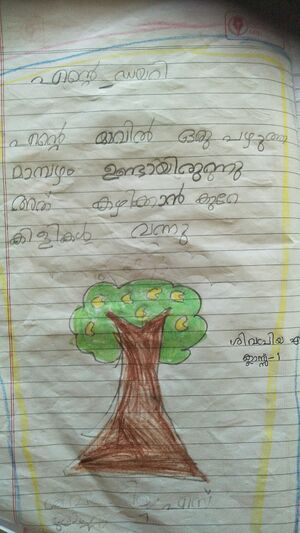 എന്റെ ഡയറി
എന്റെ മാവിൽ ഒരു പഴുത്ത
മാമ്പഴം ഉണ്ടായിരുന്നു
അത് കഴിക്കാൻ കുറേ
കിളികൾ വന്നു
ശിവപ്രിയ എ
ക്ലാസ്സ്-1